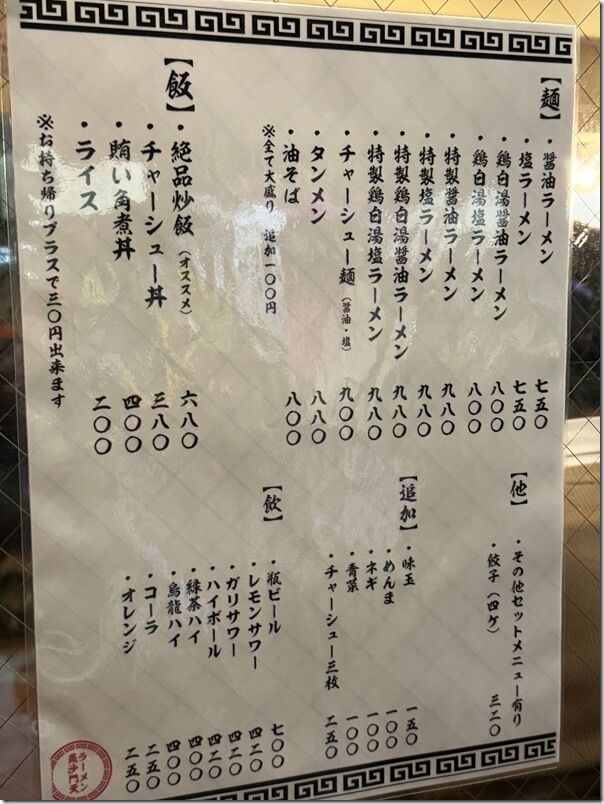 【麺】
・醤油ラーメン 七五〇
・塩ラーメン 七五〇
・鶏白湯醤油ラーメン 八〇〇
・鶏白湯塩ラーメン 八〇〇
・特製醤油ラーメン 九八〇
・特製塩ラーメン 九八〇
・特製鶏白湯醤油ラーメン 九八〇
・特製鶏白湯塩ラーメン 九八〇
・チャーシュー麺(醤油・塩) 九〇〇
・タンメン 八八〇
・油そば 八〇〇
※全て大盛り 追加一〇〇円
【飯】
・絶品炒飯(オススメ) 六八〇
・チャーシュー丼 三八〇
・賄い角煮丼 四〇〇
・ライス 二〇〇
※お持ち帰りプラスで三〇円出来ます
【他】
・その他セットメニュー有り
・餃子(四ケ) 三二〇
【追加】
・味玉 一五〇
・めんま 一〇〇
・ネギ 一〇〇
・青菜 一〇〇
・チャーシュー三枚 二五〇
【飲】
・瓶ビール 七〇〇
・レモンサワー 四二〇
・ガリサワー 四二〇
・ハイボール 四二〇
・緑茶ハイ 四〇〇
・烏龍ハイ 四〇〇
・コーラ 二五〇
・オレンジ 二五〇
ラーメン
毘沙門天